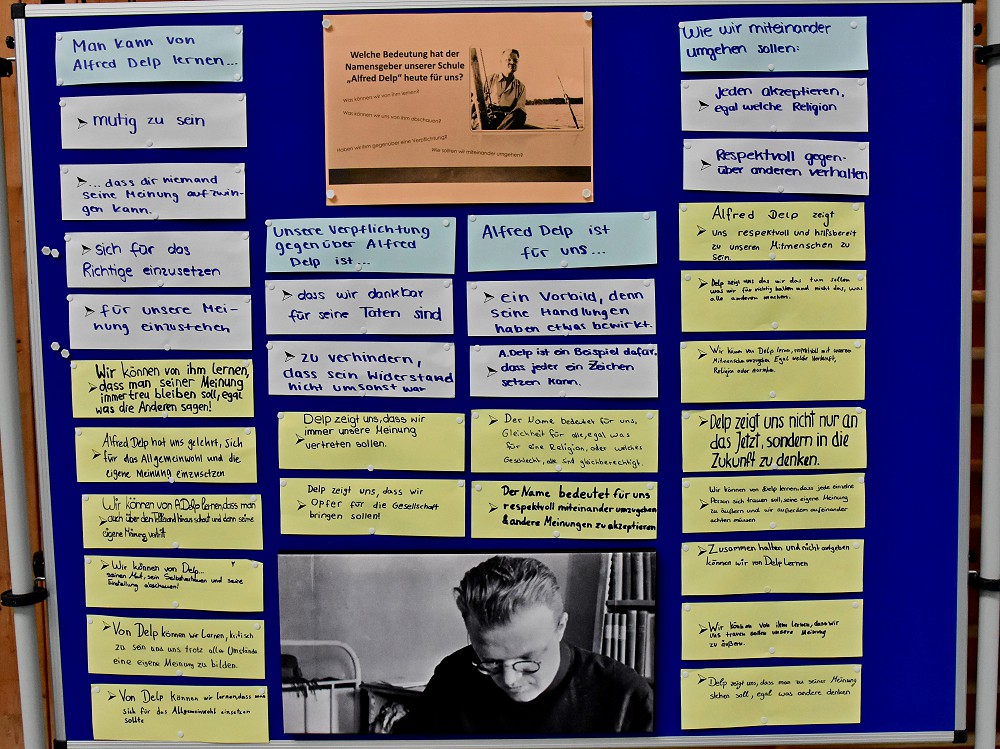 Man kann von
Alfred Delp lernen...
mutig zu sein
... dass dir niemand
seine Meinung aufzwin-
gen kann.
sich für das
Richtige einzusetzen
für unsere Mei-
nung einzustehen
Wir können von ihm lernen,
dass man seiner Meinung
immer treu bleiben soll, egal
was die Anderen sagen!
Alfred Delp hat uns gelehrt, sich
für das Allgemeinwohl und die
eigene Meinung einzusetzen
Wir können von A.Delp lernen, dass man
auch über den Tellerrand hinaus schaut und denn seine
eigene Meinung vertritt
Wir können von Delp...
seinen Mut, sein Selbstvertrauen und seine
Einstellung abschauen!
Von Delp können wir lernen, kritisch
zu sein und uns trotz aller Umstände
eine eigene Meinung zu bilden.
Von Delp können wir lernen, dass man
sich für das Allgemeinwohl einsetzen
sollte
Welche Bedeutung hat der
Namensgeber unserer Schule
„Alfred Delp“ heute für uns?
Was können wir von ihm lernen?
Was können wir uns von ihm abschauen?
Haben wir ihm gegenüber eine Verpflichtung?
Wie sollten wir miteinander umgehen?
Unsere Verpflichtung
gegenüber Alfred
Delp ist...
dass wir dankbar
für seine Taten sind
zu verhindern,
dass sein Widerstand
nicht umsonst war
Delp zeigt uns, dass wir
immer unsere Meinung
vertreten sollen.
Delp zeigt uns, dass wir
Opfer für die Gesellschaft
bringen sollen!
Alfred Delp ist
für uns...
ein Vorbild, denn
seine Handlungen
haben etwas bewirkt.
A.Delp ist ein Beispiel dafür,
dass jeder ein Zeichen
setzen kann.
Der Name bedeutet für uns,
Gleichheit für alle, egal was
für eine Religion, oder welches
Geschlecht, alle sind gleichberechtigt.
Der Name bedeutet für uns
respektvoll miteinander umzugehen
& andere Meinungen zu akzeptieren
Wie wir miteinander
umgehen sollen:
Jeden akzeptieren,
egal welche Religion
Respektvoll gegen-
über anderen verhalten
Alfred Delp zeigt
uns respektvoll und hilfsbereit
zu unseren Mitmenschen zu
sein.
Delp zeigt uns das wir das tun sollen
was wir für richtig halten und nicht das, was
alle anderen machen.
Wir können von Delp lernen, respektvoll mit unseren
Mitmenschen umzugehen. Egal welcher Herkunft,
Religion oder
Delp zeigt uns nicht nur an
das Jetzt, sondern in die
Zukunft zu denken.
Wir können von A.Delp lernen, dass jede einzelne
Person sich trauen soll, seine eigene Meinung
zu äußern und wir außerdem aufeinander
achten müssen
Zusammen halten und nicht aufgeben
können wir von Delp lernen
Wir können von ihm lernen, dass wir
uns trauen sollen unsere Meinung
zu äußern.
Delp zeigt uns, dass man zu seiner Meinung
stehen soll, egal was andere denken